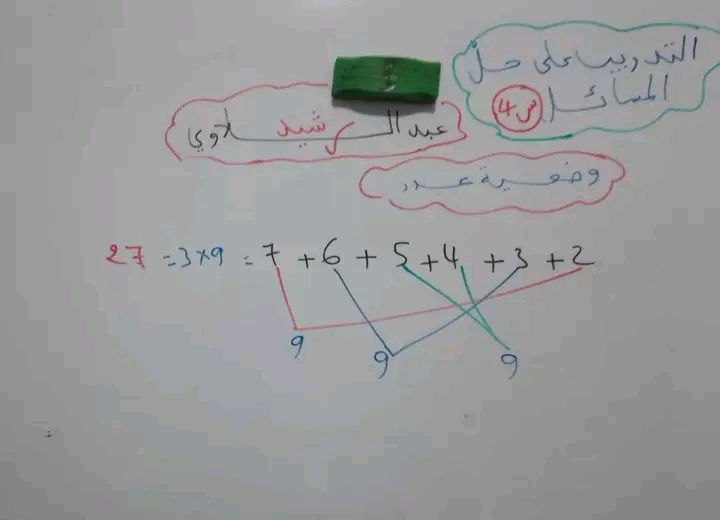 التدريب على حل
المسائل س4
عبد الرشيد لاوي
وضعية عدد
27 = 3×9 = 7 + 6 + 5 + 4 + 3 + 2
9 9 9